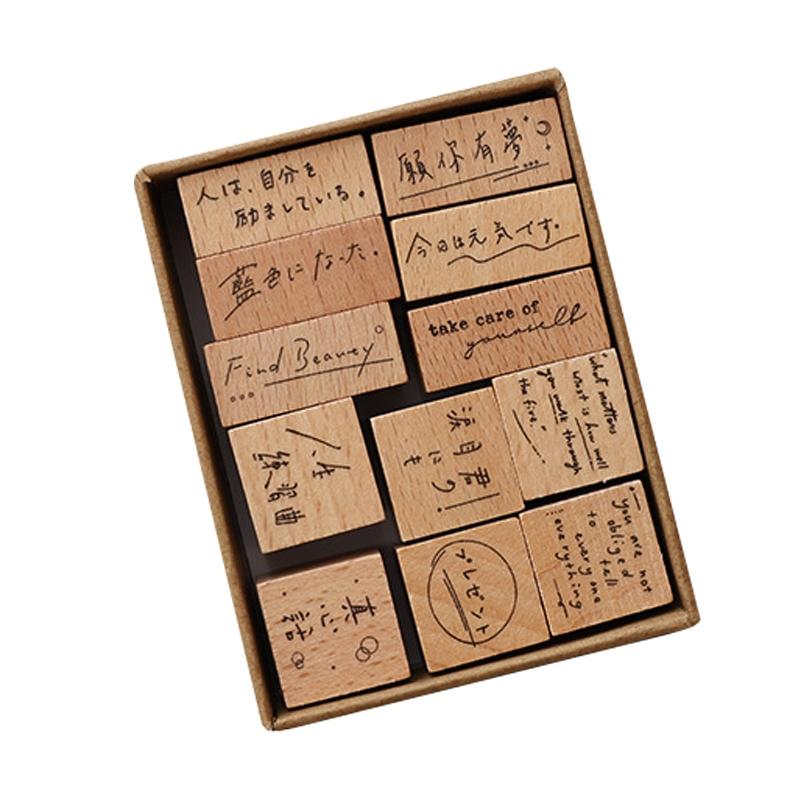 人は、自分を
励ましている。
願你有夢
藍色になった。
今日は元気です.
Find Beauty
take care of
yourself
"what matters
most is how well
you walk through
the fire."
人生
練習曲
you are not
obliged to tell
every one
everything
真心話
プレゼント